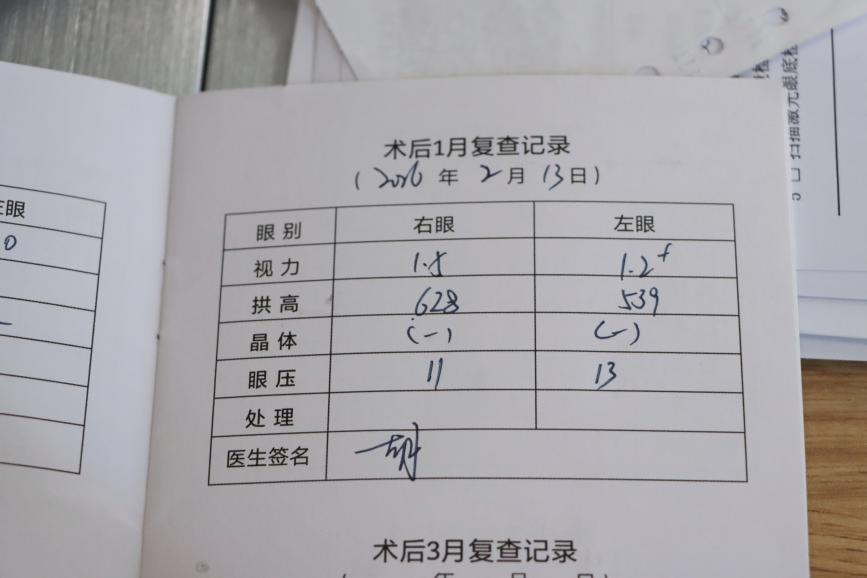 术后1月复查记录
(2026年2月13日)
眼别 右眼 左眼
视力 1.5 1.2⁺
拱高 628 539
晶体 (-) (-)
眼压 11 13
处理
医生签名 胡
术后3月复查记录
眼
0
扫描激光眼底检